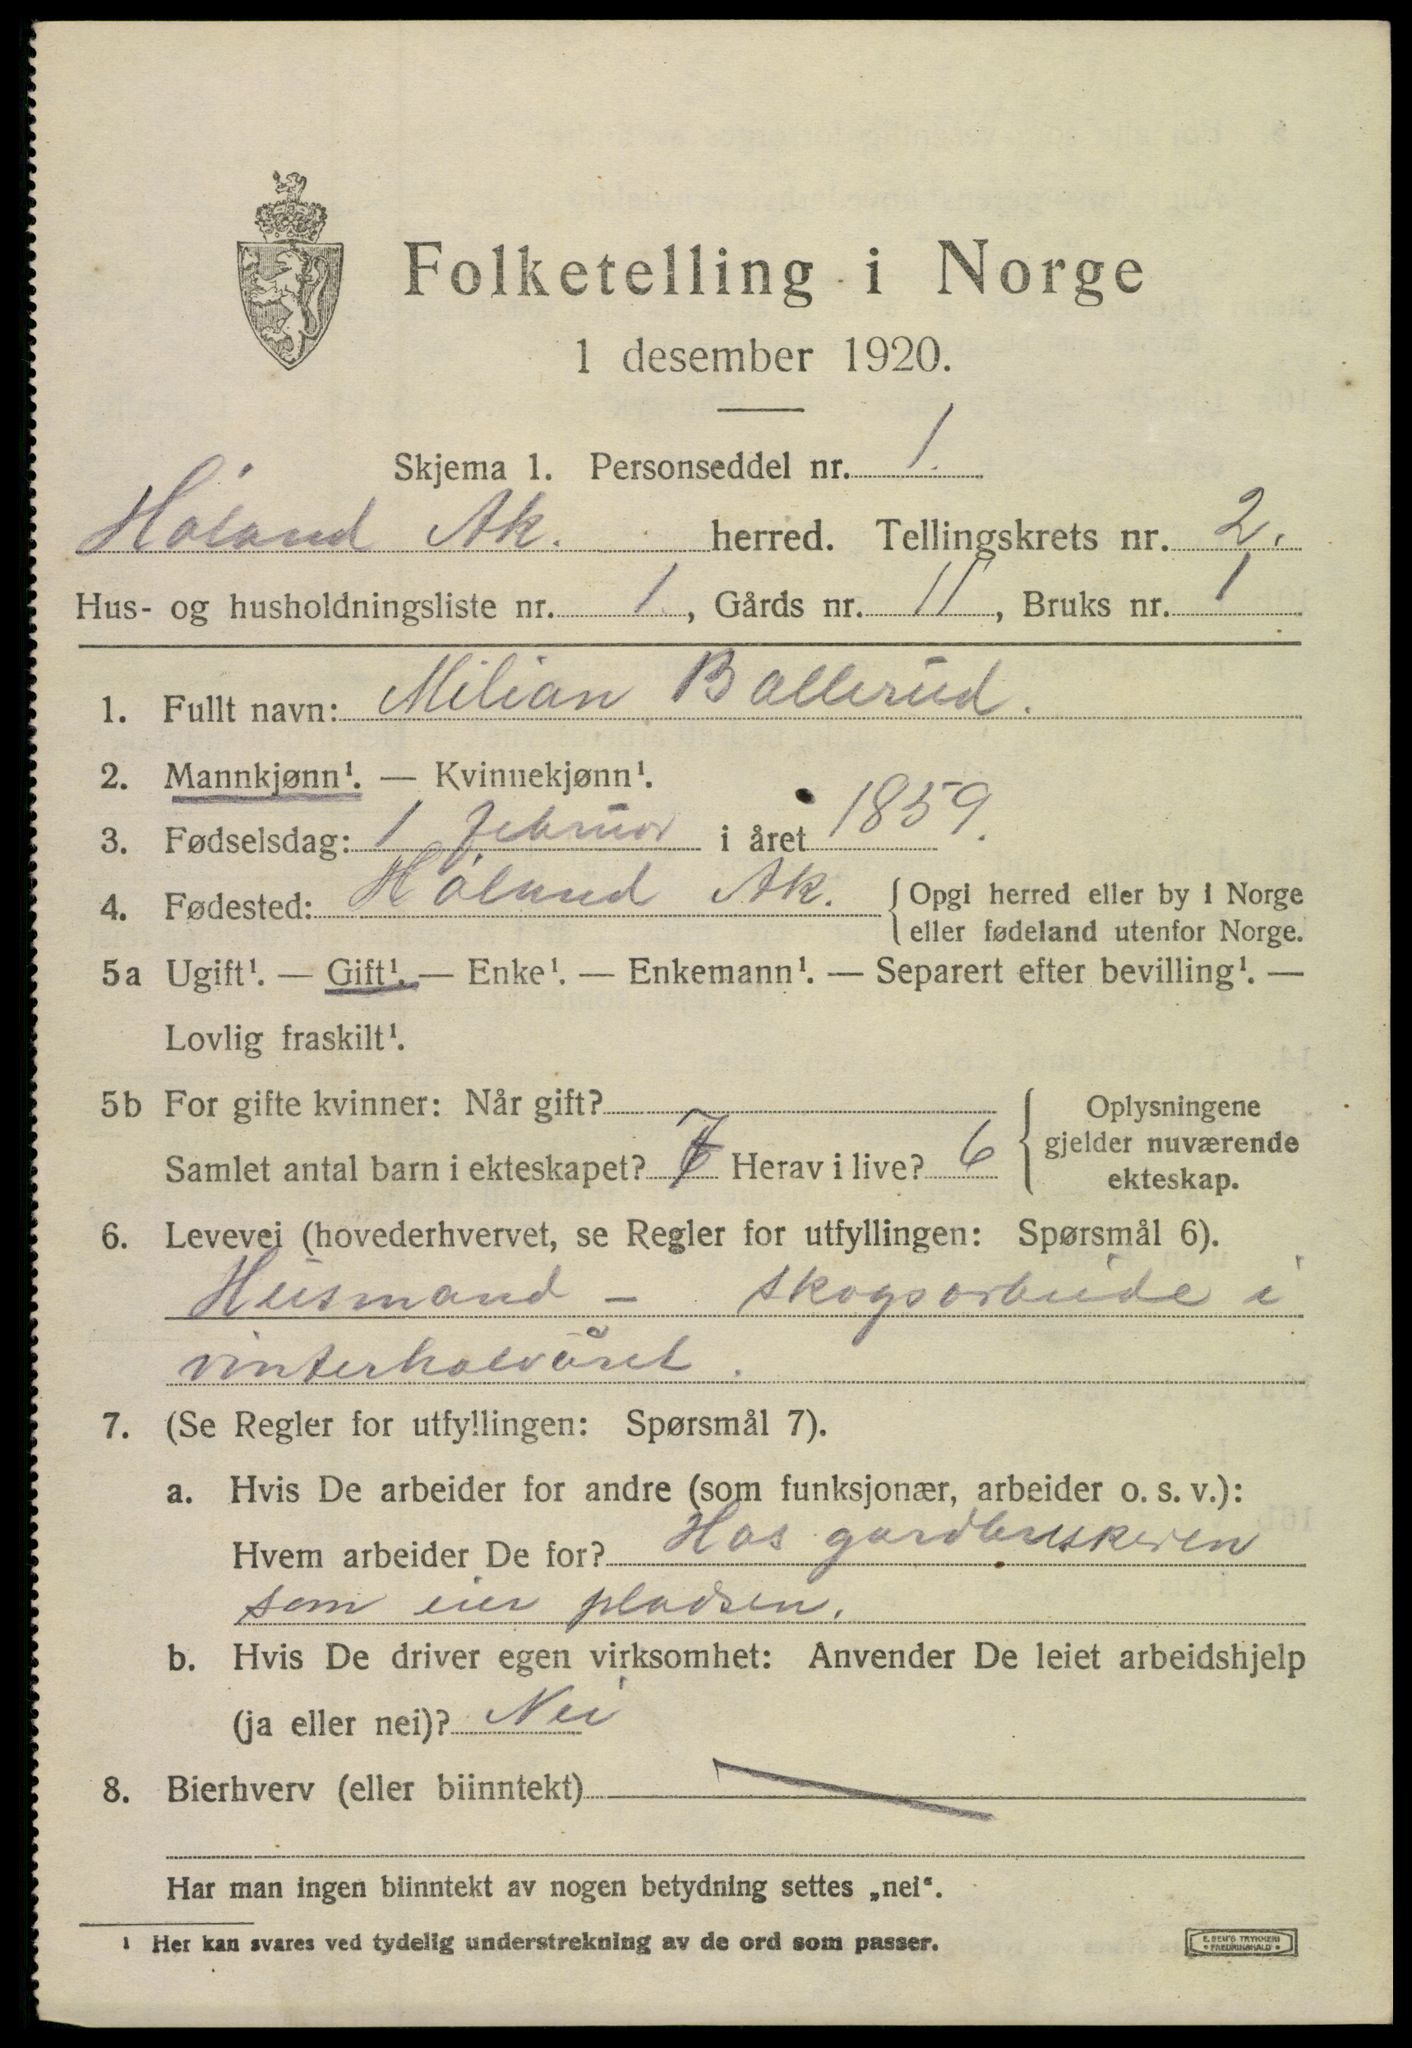 Folketelling i Norge
1 desember 1920.
Skjema 1. Personseddel nr. 1.
Høland Ak. herred. Tellingskrets nr. 2.
Hus- og husholdningsliste nr. 1., Gårds nr. 11, Bruks nr. 1
1. Fullt navn: Milian Ballerud.
2. Mannkjønn¹. — Kvinnekjønn¹.
3. Fødselsdag: 1 februar i året 1859.
4. Fødested: Høland Ak. { Opgi herred eller by i Norge
eller fødeland utenfor Norge.
5a Ugift¹. — Gift¹. — Enke¹. — Enkemann¹. — Separert efter bevilling¹. —
Lovlig fraskilt¹.
5b For gifte kvinner: Når gift? { Oplysningene
Samlet antal barn i ekteskapet? 7 Herav i live? 6 gjelder nuværende
ekteskap.
6. Levevei (hovederhvervet, se Regler for utfyllingen: Spørsmål 6).
Husmand - skogsarbeide i
vinterhalvåret.
7. (Se Regler for utfyllingen: Spørsmål 7).
a. Hvis De arbeider for andre (som funksjonær, arbeider o. s. v.):
Hvem arbeider De for? Hos gardbruskeren
som eier pladsen.
b. Hvis De driver egen virksomhet: Anvender De leiet arbeidshjelp
(ja eller nei)? Nei
8. Bierhverv (eller biinntekt)
Har man ingen biinntekt av nogen betydning settes „nei“.
¹ Her kan svares ved tydelig understrekning av de ord som passer.
E. SEM'S TRYKKERI
• FREDRIKSHALD •